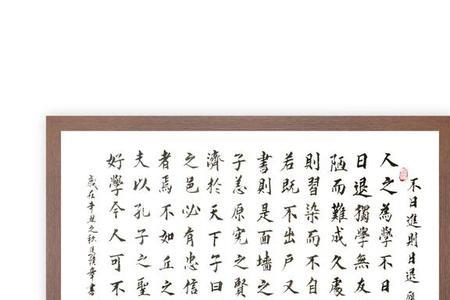 不日進則日退
人之為學不日
日退獨學無友
陋而難成久處
則習染而不自
若既不出戶又
書則是面墻之
子羔原憲之賢
濟於天下子曰
之邑必有忠信
者焉不如丘之
夫以孔子之聖
好學今人可不
歲在辛丑之秋 章書